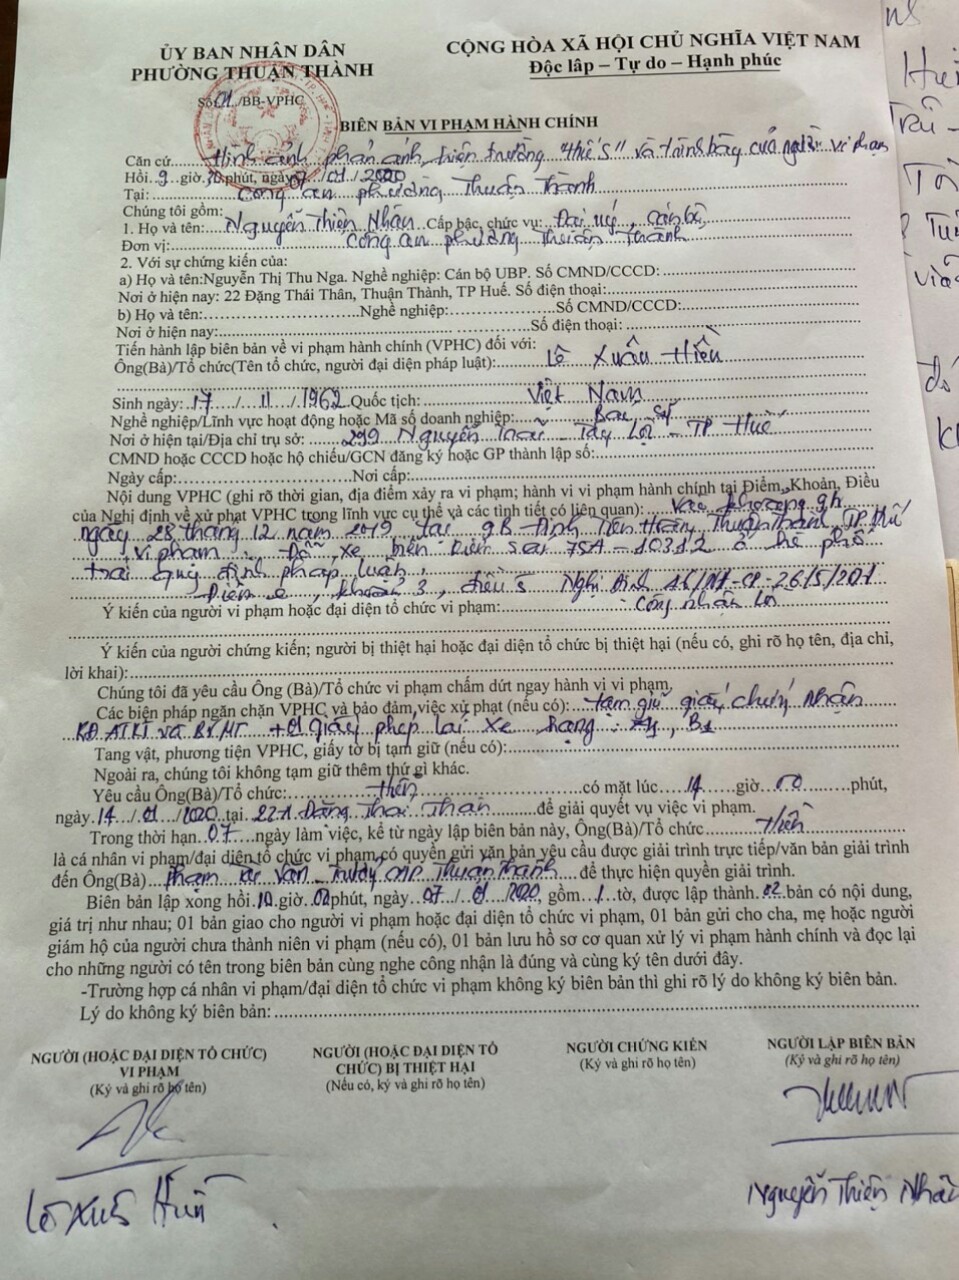 ỦY BAN NHÂN DÂN
PHƯỜNG THUẬN THÀNH
CỘNG HÒA XÃ HỘI CHỦ NGHĨA VIỆT NAM
Độc lập – Tự do – Hạnh phúc
Số 01./BB-VPHC
BIÊN BẢN VI PHẠM HÀNH CHÍNH
Căn cứ Hình ảnh phản ánh hiện trường "Huế S" và trình bày của người vi phạm
Hồi 9 giờ 30 phút, ngày 07/01/2020
Tại: Công an phường Thuận Thành
Chúng tôi gồm:
1. Họ và tên: Nguyễn Thiện Nhân Cấp bậc, chức vụ: Đại uý, cán bộ
Đơn vị: Công an phường Thuận Thành
2. Với sự chứng kiến của:
a) Họ và tên:Nguyễn Thị Thu Nga. Nghề nghiệp: Cán bộ UBP. Số CMND/CCCD:
Nơi ở hiện nay: 22 Đặng Thái Thân, Thuận Thành, TP Huế. Số điện thoại:
b) Họ và tên: Nghề nghiệp: Số CMND/CCCD:
Nơi ở hiện nay: Số điện thoại:
Tiến hành lập biên bản về vi phạm hành chính (VPHC) đối với:
Ông(Bà)/Tổ chức(Tên tổ chức, người đại diện pháp luật): Lê Xuân Hiền
Sinh ngày: 17/11/1962 Quốc tịch: Việt Nam
Nghề nghiệp/Lĩnh vực hoạt động hoặc Mã số doanh nghiệp: Bác sĩ
Nơi ở hiện tại/Địa chỉ trụ sở: 299 Nguyễn Trãi - Tây Lộc - TP Huế
CMND hoặc CCCD hoặc hộ chiếu/GCN đăng ký hoặc GP thành lập số:
Ngày cấp: Nơi cấp:
Nội dung VPHC (ghi rõ thời gian, địa điểm xảy ra vi phạm; hành vi vi phạm hành chính tại Điểm, Khoản, Điều
của Nghị định về xử phạt VPHC trong lĩnh vực cụ thể và các tình tiết có liên quan): Vào khoảng 9h
ngày 28 tháng 12 năm 2019, tại 9B Đinh Tiên Hoàng, Thuận Thành, TP Huế
vi phạm: Đỗ xe biển kiểm soát 75A-10312 ở hè phố
trái quy định pháp luật.
Điểm e, khoản 3, điều 5 Nghị định 46/NĐ-CP-26/5/201
Ý kiến của người vi phạm hoặc đại diện tổ chức vi phạm: Công nhận lỗi
Ý kiến của người chứng kiến; người bị thiệt hại hoặc đại diện tổ chức bị thiệt hại (nếu có, ghi rõ họ tên, địa chỉ,
lời khai):
Chúng tôi đã yêu cầu Ông (Bà)/Tổ chức vi phạm chấm dứt ngay hành vi vi phạm.
Các biện pháp ngăn chặn VPHC và bảo đảm việc xử phạt (nếu có): tạm giữ giấy chứng nhận
KĐ ATKT và BVMT + 01 giấy phép lái xe hạng: A1, B1
Tang vật, phương tiện VPHC, giấy tờ bị tạm giữ (nếu có):
Ngoài ra, chúng tôi không tạm giữ thêm thứ gì khác.
Yêu cầu Ông(Bà)/Tổ chức: Hiền có mặt lúc 14 giờ 00 phút,
ngày 14/01/2020 tại 22 Đặng Thái Thân để giải quyết vụ việc vi phạm.
Trong thời hạn 07 ngày làm việc, kể từ ngày lập biên bản này, Ông(Bà)/Tổ chức Hiền
là cá nhân vi phạm/đại diện tổ chức vi phạm có quyền gửi văn bản yêu cầu được giải trình trực tiếp/văn bản giải trình
đến Ông(Bà) Phạm Văn Thuận Thành để thực hiện quyền giải trình.
Biên bản lập xong hồi 10 giờ 00 phút, ngày 07/01/2020, gồm 1 tờ, được lập thành 02 bản có nội dung,
giá trị như nhau; 01 bản giao cho người vi phạm hoặc đại diện tổ chức vi phạm, 01 bản gửi cho cha, mẹ hoặc người
giám hộ của người chưa thành niên vi phạm (nếu có), 01 bản lưu hồ sơ cơ quan xử lý vi phạm hành chính và đọc lại
cho những người có tên trong biên bản cùng nghe công nhận là đúng và cùng ký tên dưới đây.
-Trường hợp cá nhân vi phạm/đại diện tổ chức vi phạm không ký biên bản thì ghi rõ lý do không ký biên bản.
Lý do không ký biên bản:
NGƯỜI (HOẶC ĐẠI DIỆN TỔ CHỨC)
VI PHẠM
(Ký và ghi rõ họ tên)
NGƯỜI (HOẶC ĐẠI DIỆN TỔ
CHỨC) BỊ THIỆT HẠI
(Nếu có, ký và ghi rõ họ tên)
NGƯỜI CHỨNG KIẾN
(Ký và ghi rõ họ tên)
NGƯỜI LẬP BIÊN BẢN
(Ký và ghi rõ họ tên)
Lê Xuân Hiền
Nguyễn Thiện Nhân